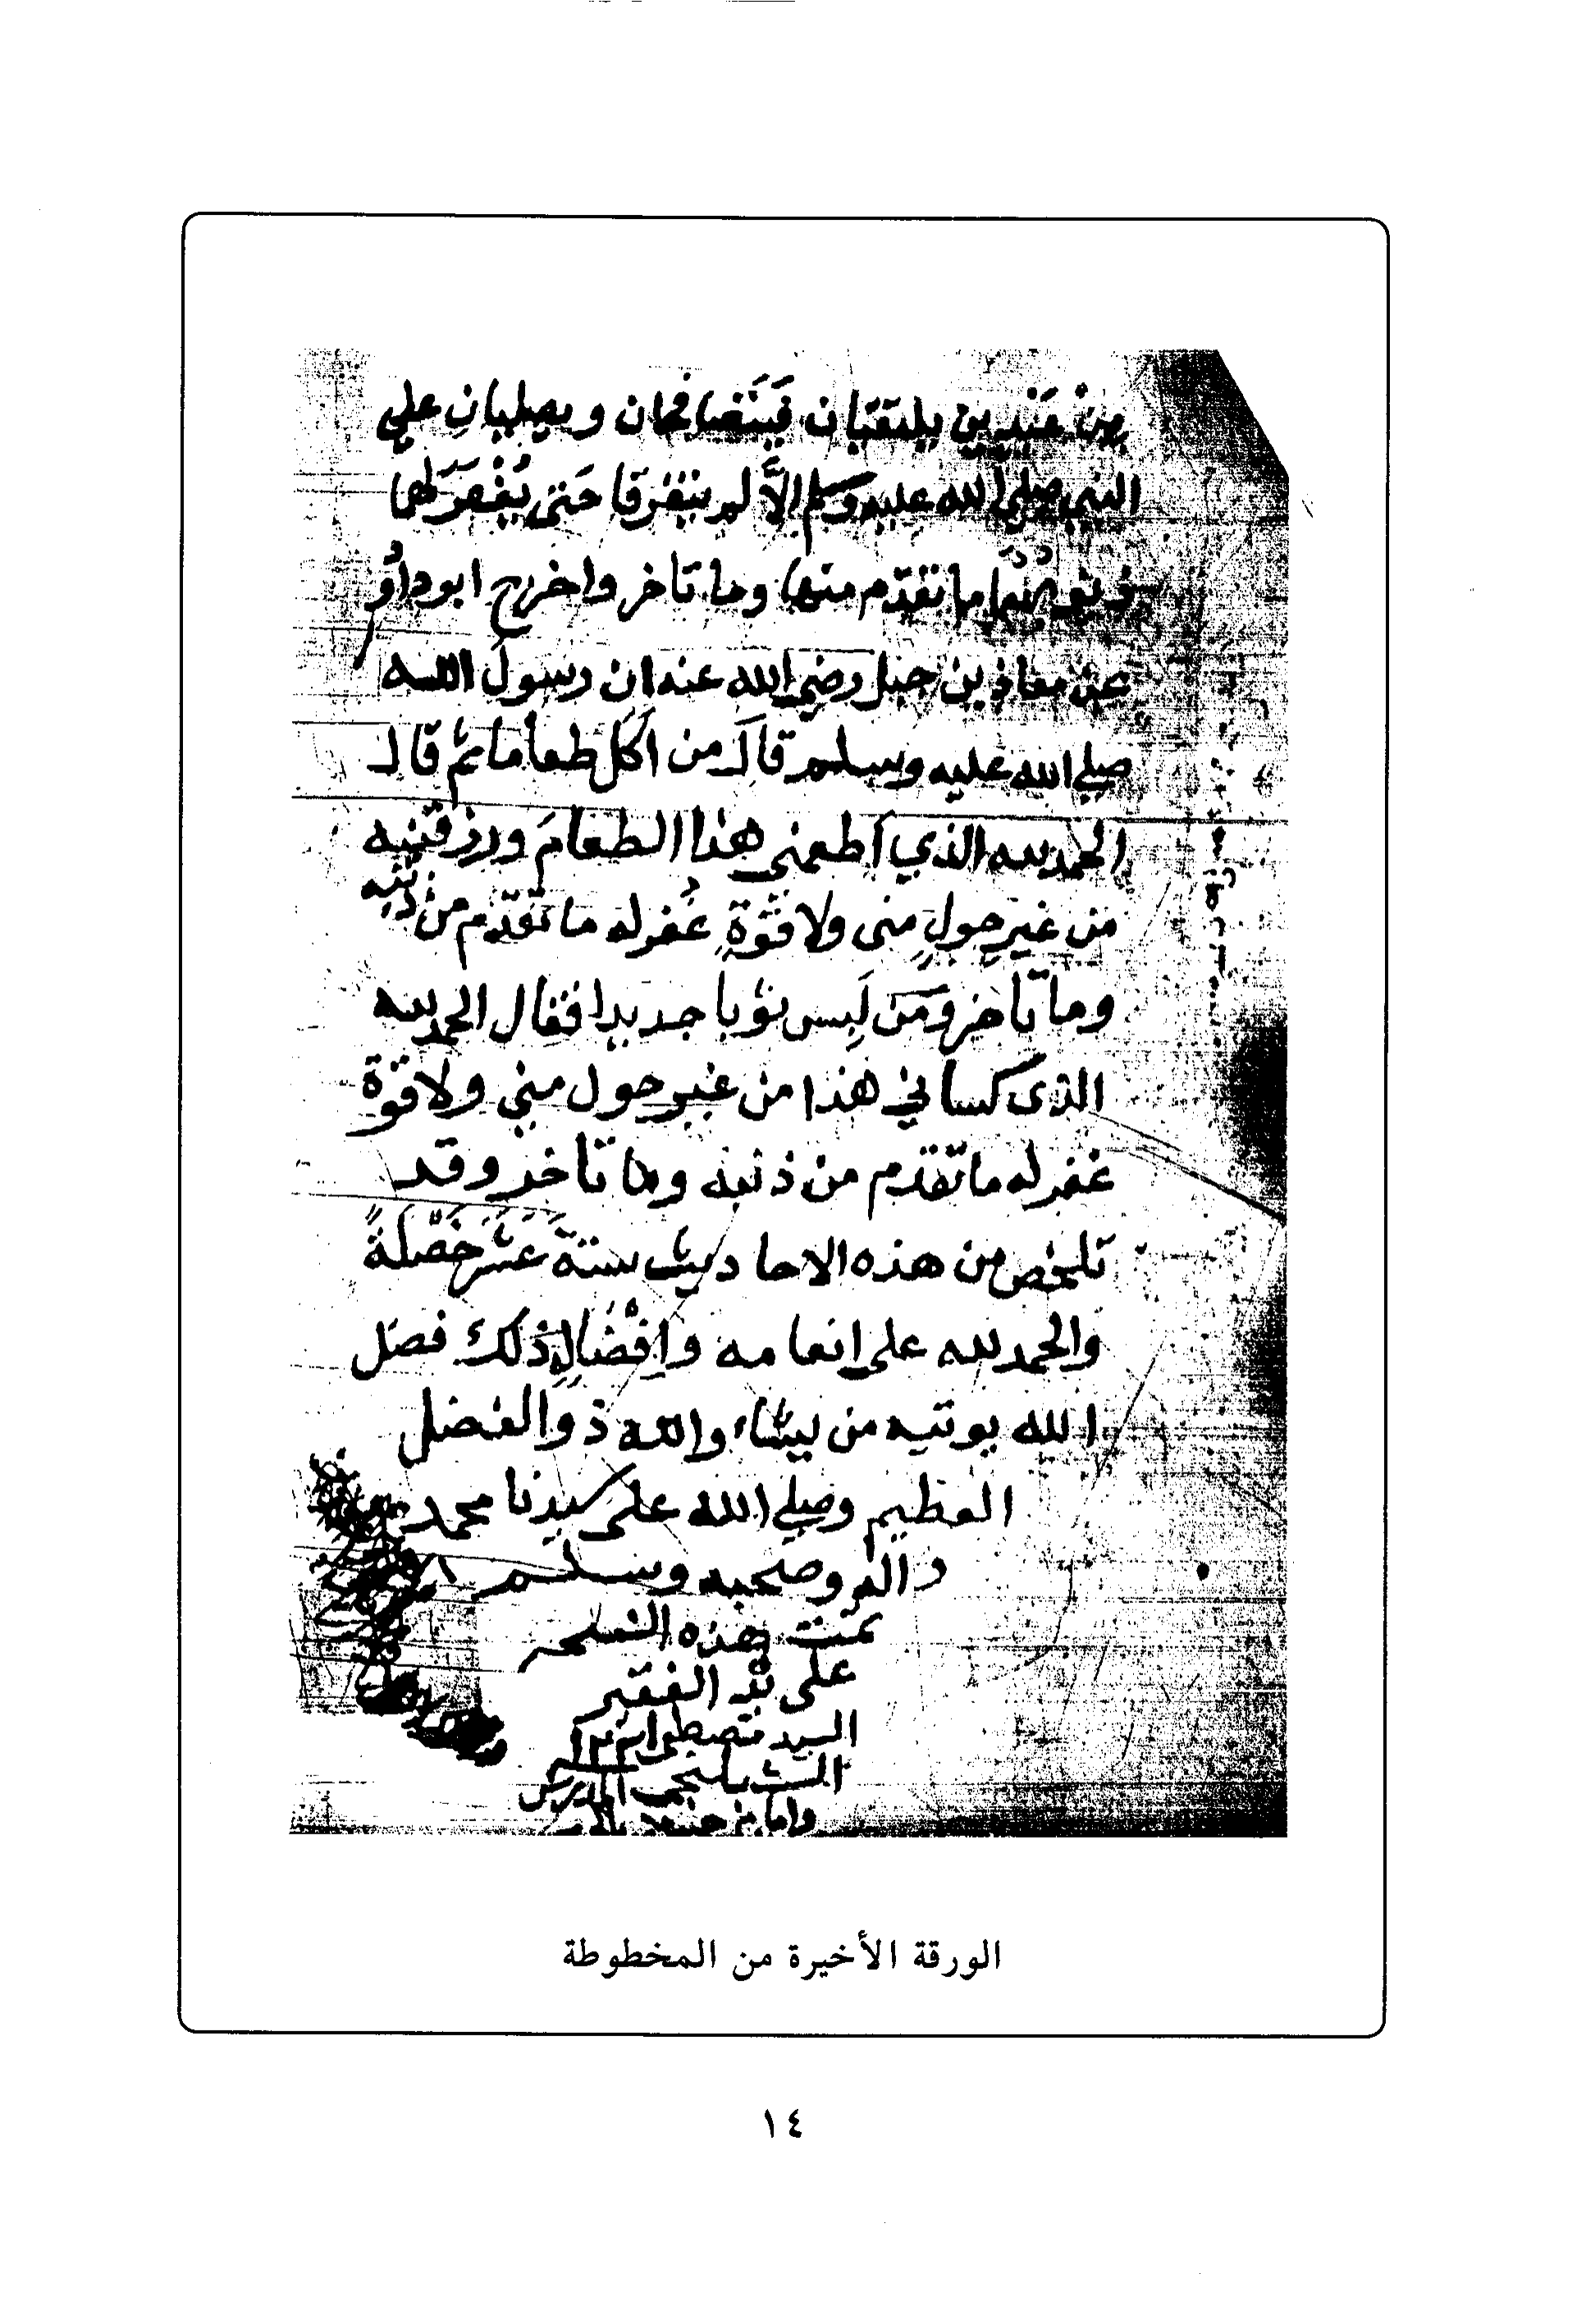 من عَبْدين يلتقيان فَيَتَصافحان ويصليانِ علي
النبي صلي الله عليه وسلم الَّا لم يتفرقا حَتى يُغْفَرَ لهما
ذنوبُهُما ما تقدّم منها وما تاخر واخرج ابو داوُد
عن معاذ بن جبل رضي الله عنه ان رسولَ الله
صلي الله عليه وسلم قالَ من اَكَلَ طعاماً ثم قال
الحمد لله الذي اَطعمني هذا الطعامَ ورزقَنيه
من غير حولٍ مني ولا قُوّةٍ غُفر له ما تَقَدّم من ذنبه
وما تَاخر ومَن لَبِس ثوبا جديدا فقال الحمد لله
الذي كساني هذا من غير حول مني ولا قوّة
غفر له ما تَقَدم من ذنبه وما تاخر وقد
تلخص من هذه الاحاديث ستةَ عَشَرَ خَصْلَةً
والحمد لله على انعامه وافْضَالِه ذلك فضل
الله يوتيه من يشاء والله ذو الفضل
العظيم وصلي الله على سيدنا محمد
واله وصحبه وسلم
تمت هذه النسخه
على يد الفقير
السيد مصطفى ابن
المدرس
الورقة الأخيرة من المخطوطة
١٤